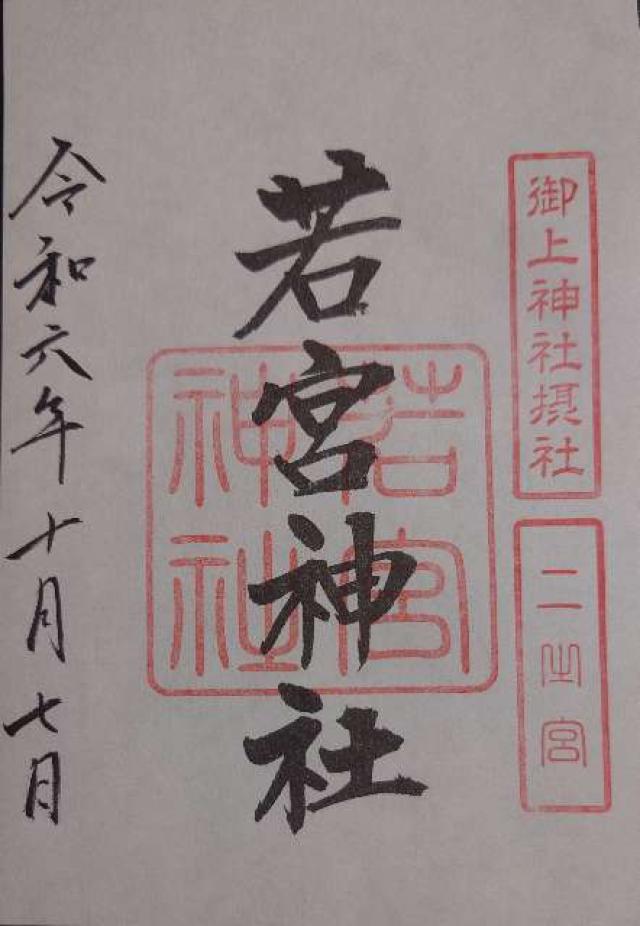 御上神社摂社
二之宮
若宮神社
若宮
神社
令和六年十月七日